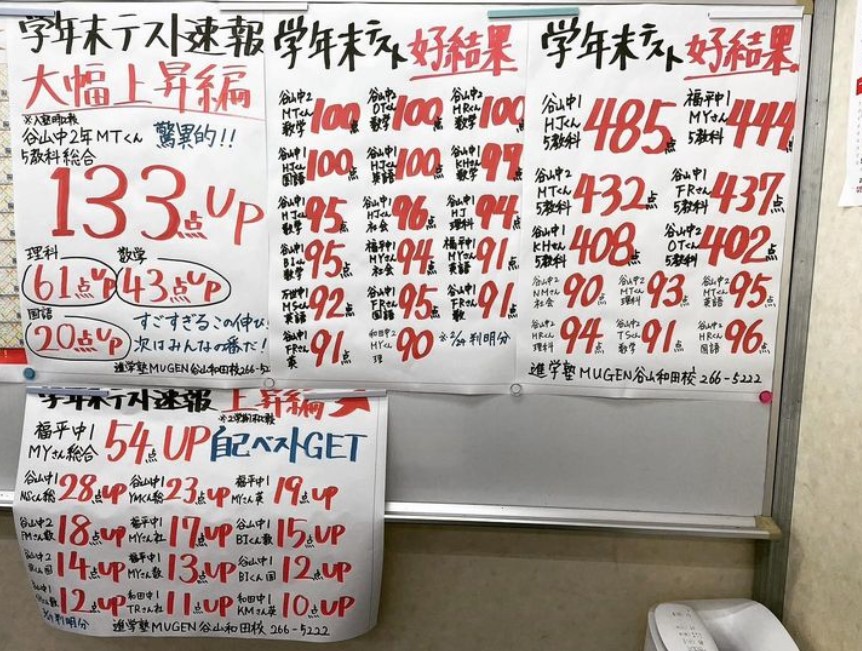 学年末テスト速報
大幅上昇編
※入塾時比較
谷山中2年MTくん 驚異的!!
5教科総合
133点UP
理科 数学
61点UP 43点UP
国語
20点UP
すごすぎるこの伸び!
次はみんなの番だ!
進学塾MUGEN谷山和田校 266-52
学年末テスト 好結果
谷山中2 MTくん 数学 100点
谷山中2 OTくん 数学 100点
谷山中2 HRくん 数学 100
谷山中1 HJくん 国語 100点
谷山中1 HJくん 英語 100点
谷山中1 KHさん 数学 97点
谷山中1 HJくん 数学 95点
谷山中1 HJくん 社会 96点
谷山中1 HJ 理科 94点
谷山中1 BIくん 数学 95点
福平中1 MYさん 社会 94点
福平中1 MYさん 英語 91点
MSくん 英語 92点
谷山中1 FRさん 国語 95点
谷山中1 FRさん 数 91点
谷山中1 FRさん 英 91点
和田中2 MYくん 理 90
判明分
学年末テスト 好結果
谷山中1 HJくん 5教科 485点
福平中1 MYさん 5教科 444
谷山中2 MTくん 5教科 432点
谷山中1 FRさん 5教科 437点
谷山中1 KHさん 5教科 408点
谷山中2 OTくん 5教科 402点
谷山中2 NMさん 社会 90点
谷山中2 MTくん 理科 93点
谷山中2 MTくん 英語 95点
谷山中2 HRくん 理科 94点
谷山中2 TSくん 数学 91点
谷山中2 HRくん 国語 96点
進学塾MUGEN谷山和田校 266-5222
学年末テスト速報 上昇編
※2学期末比較
福平中1 MYさん総合 54点UP 自己ベストGET
谷山中1 NSくん総 28点UP
谷山中1 YMくん総 23点UP
福平中1 MYさん英 19点UP
谷山中2 FMさん数 18点UP
福平中1 MYさん社 17点UP
谷山中1 BIくん数 15点UP
谷山中2 くん国 14点UP
福平中1 MYさん数 13点UP
谷山中1 BIくん国 12点UP
山中1 数 12点UP
和田中2 TRさん社 11点UP
和田中1 KMさん英 10点UP
判明分
進学塾MUGEN谷山和田校 266-5222